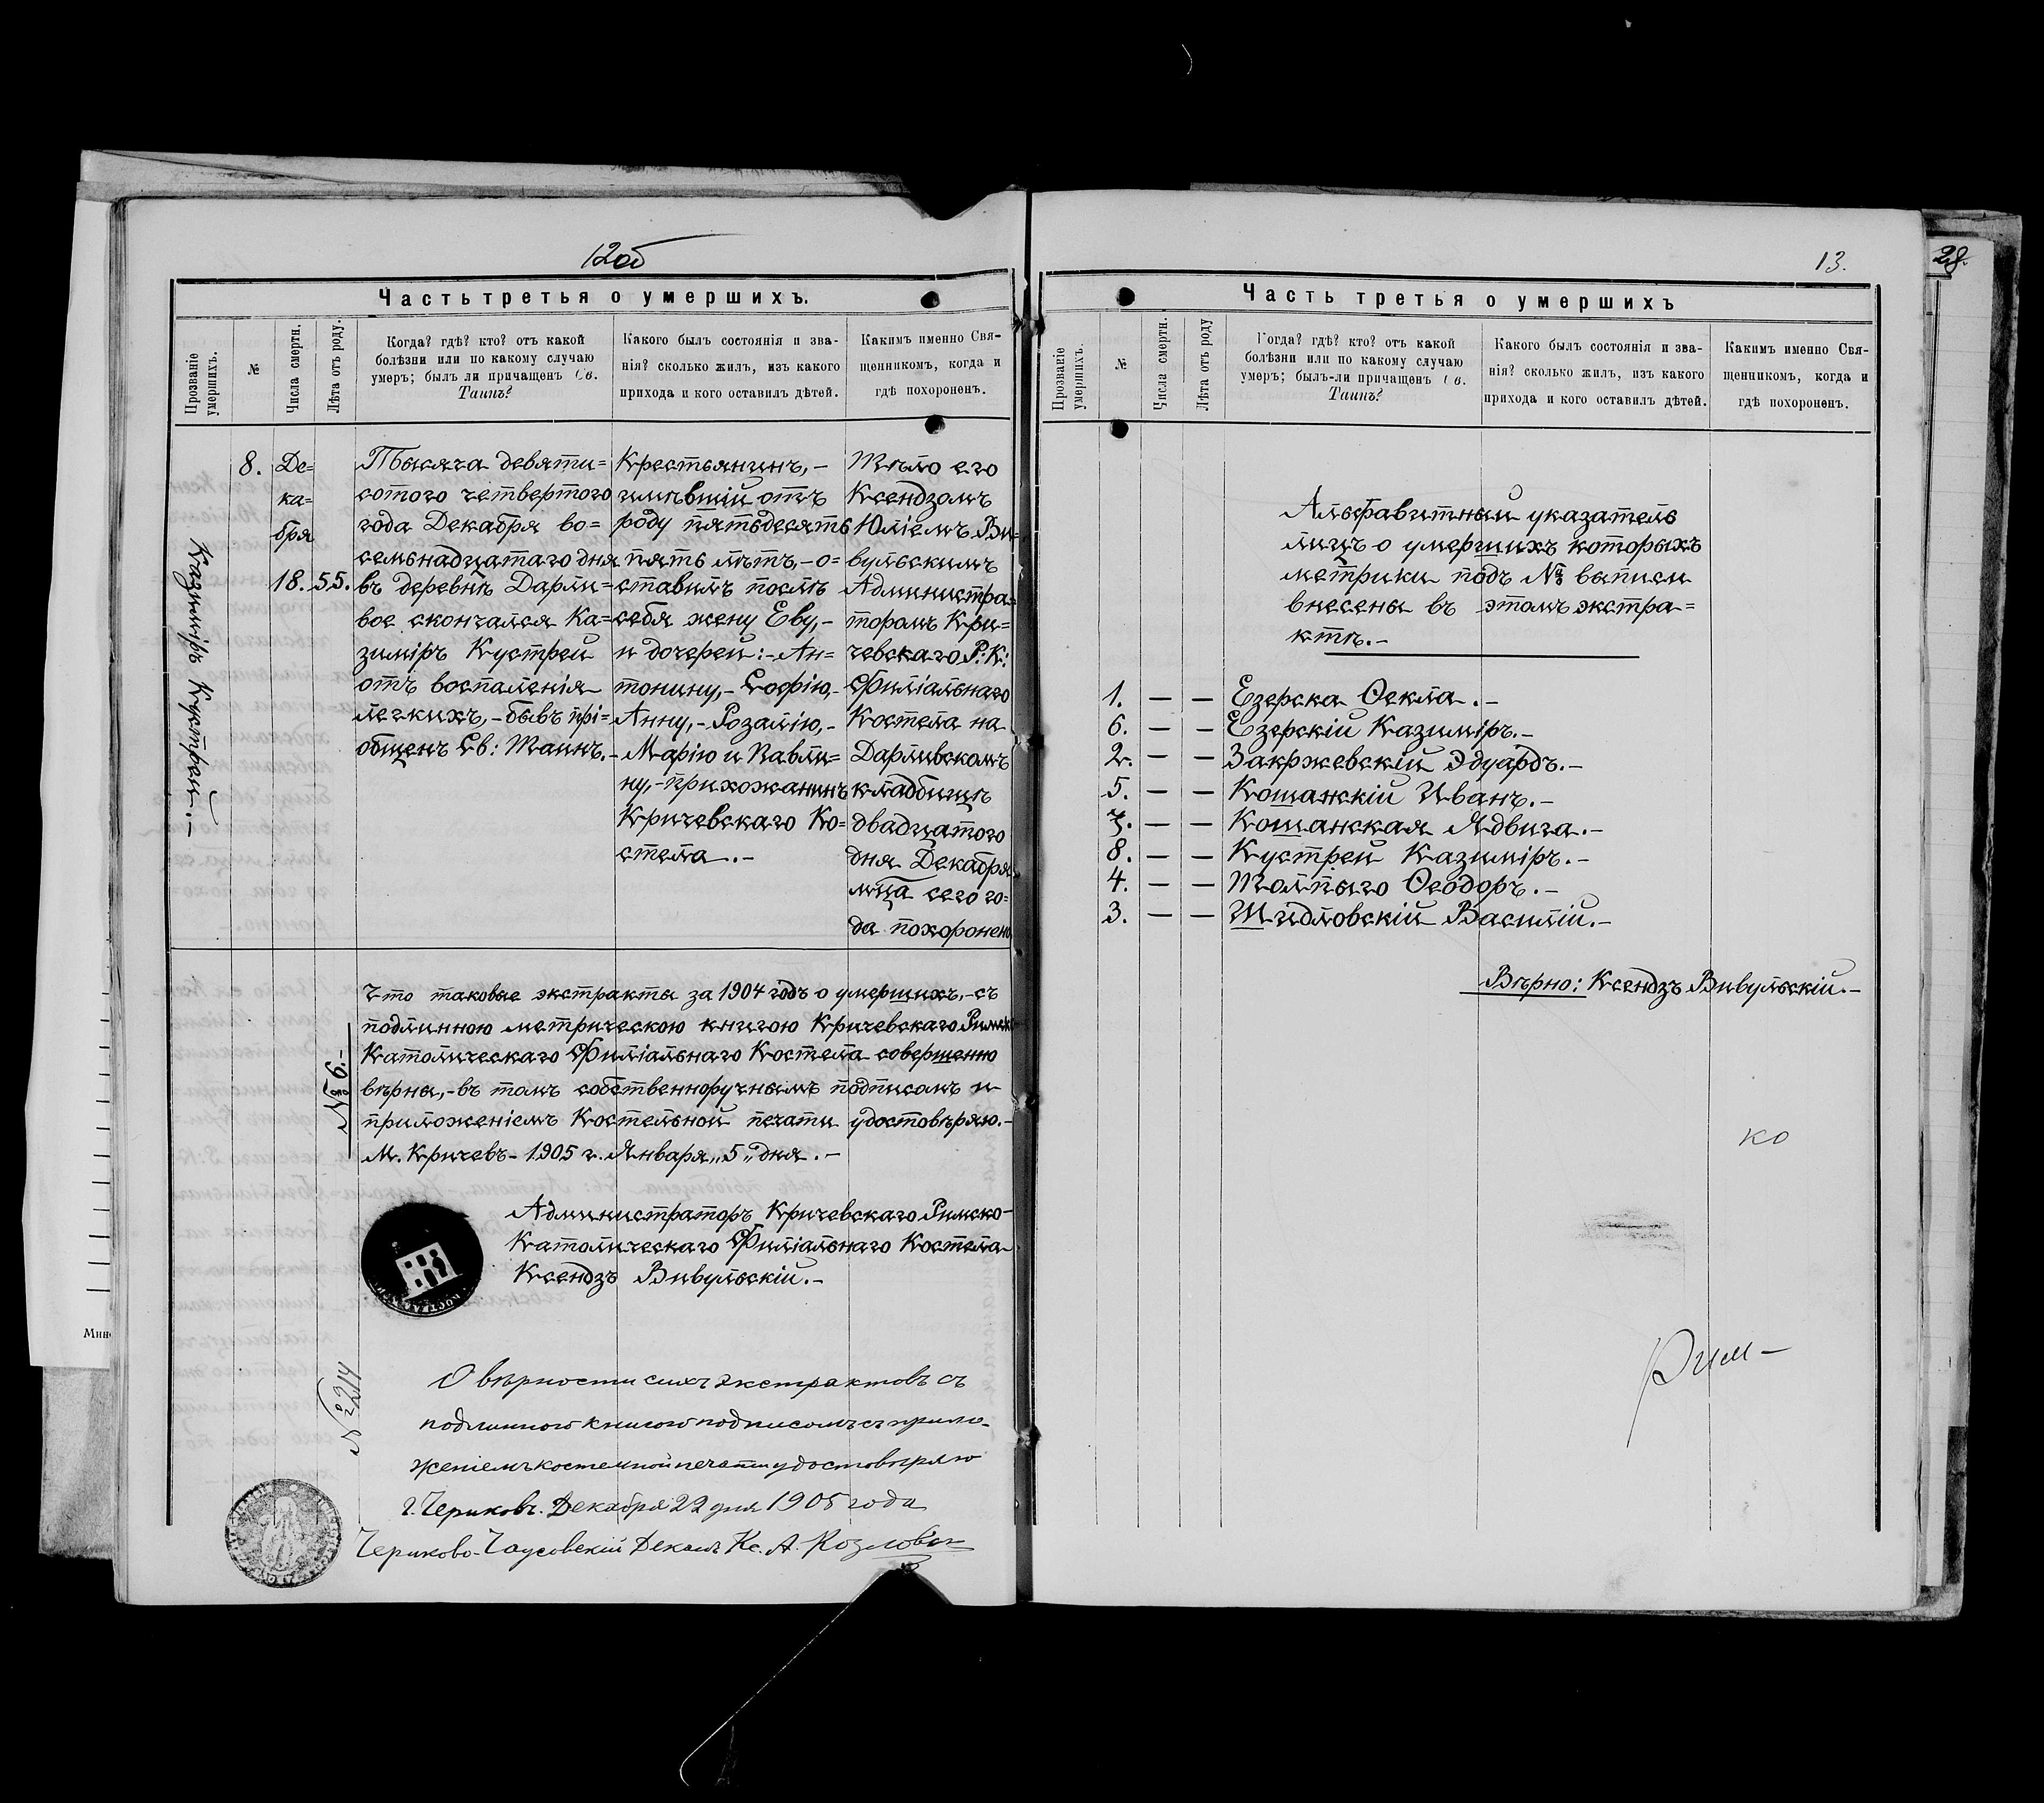 12об
Часть третья о умершихъ.
Прозваніе умершихъ.
№
Числа смерти.
Лѣта отъ роду.
Когда? гдѣ? кто? отъ какой
болѣзни или по какому случаю
умеръ; былъ ли причащенъ Св.
Таинъ?
Какого былъ состоянія и зва-
нія? сколько жилъ, изъ какого
прихода и кого оставилъ дѣтей.
Каким именно Свя-
щенникомъ, когда и
гдѣ похороненъ.
Казиміръ Кустрей.-
8.
Де=
ка=
бря
18.
55.
Тысяча девяти=
сотого четвертого
года Декабря во=
семьнадцатаго дня
въ деревнѣ Дарли=
вое скончался Ка=
зиміръ Кустрей
отъ воспаленія
легкихъ,- бывъ прі=
общенъ Св: Таинъ.-
Крестьянинъ,-
имѣвшій отъ
роду пятьдесятъ
пять лѣтъ,- о=
ставилъ послѣ
себя жену Еву,-
и дочерей:- Ан=
тонину,- Софію,-
Анну,- Розалію,-
Марію и Павли=
ну,- прихожанинъ
Кричевскаго Ко=
стела.-
Тѣло его
Ксендзомъ
Юліемъ Ви=
вульскимъ
Администра=
торомъ Кри=
чевскаго Р:К:
Филіальнаго
Костела на
Дарливскомъ
кладбищѣ
двадцатого
дня Декабря
мца сего го=
да похоронено
№ 6.-
Что таковые экстракты за 1904 годъ о умершихъ,- съ
подлинною метрическою книгою Кричевскаго Римско
Католическаго Филіальнаго Костела совершенно
вѣрны,- въ томъ собственноручнымъ подписомъ и
приложеніемъ Костельной печати удостовѣряю.-
М. Кричевъ- 1905 г. Января „5„ дня.-
Администраторъ Кричевскаго Римско-
Католическаго Филіальнаго Костела
Ксендзъ Вивульскій.-
№ 2214
О вѣрности сихъ экстрактовъ съ
подлинною книгою подписомъ съ прило-
женіемъ костельной печати удостовѣряю
г. Чериковъ. Декабря 22 дня 1905 года
Чериково-Чаусовскій Деканъ Кс. А. Козловск
13.
28.
Часть третья о умершихъ
Прозваніе умершихъ.
№
Числа смерти.
Лѣта отъ роду
Когда? гдѣ? кто? отъ какой
болѣзни или по какому случаю
умеръ; былъ-ли причащенъ Св.
Таинъ?
Какого былъ состоянія и зва-
нія? сколько жилъ, изъ какого
прихода и кого оставилъ дѣтей.
Каким именно Свя-
щенникомъ, когда и
гдѣ похороненъ.
Альфавитный указатель
лицъ о умершихъ которыхъ
метрики подъ № выписи
внесены въ этомъ экстра=
ктѣ.-
1. — — Езерска Ѳекла.-
6. — — Езерскій Казиміръ.-
2. — — Закржевскій Эдуардъ.-
5. — — Кошанскій Иванъ.-
7. — — Кошанская Ядвига.-
8. — — Кустрей Казиміръ.-
4. — — Толпыго Ѳеодоръ.-
3. — — Шидловскій Василій.-
Вѣрно: Ксендзъ Вивульскій.-
ко
Рим-